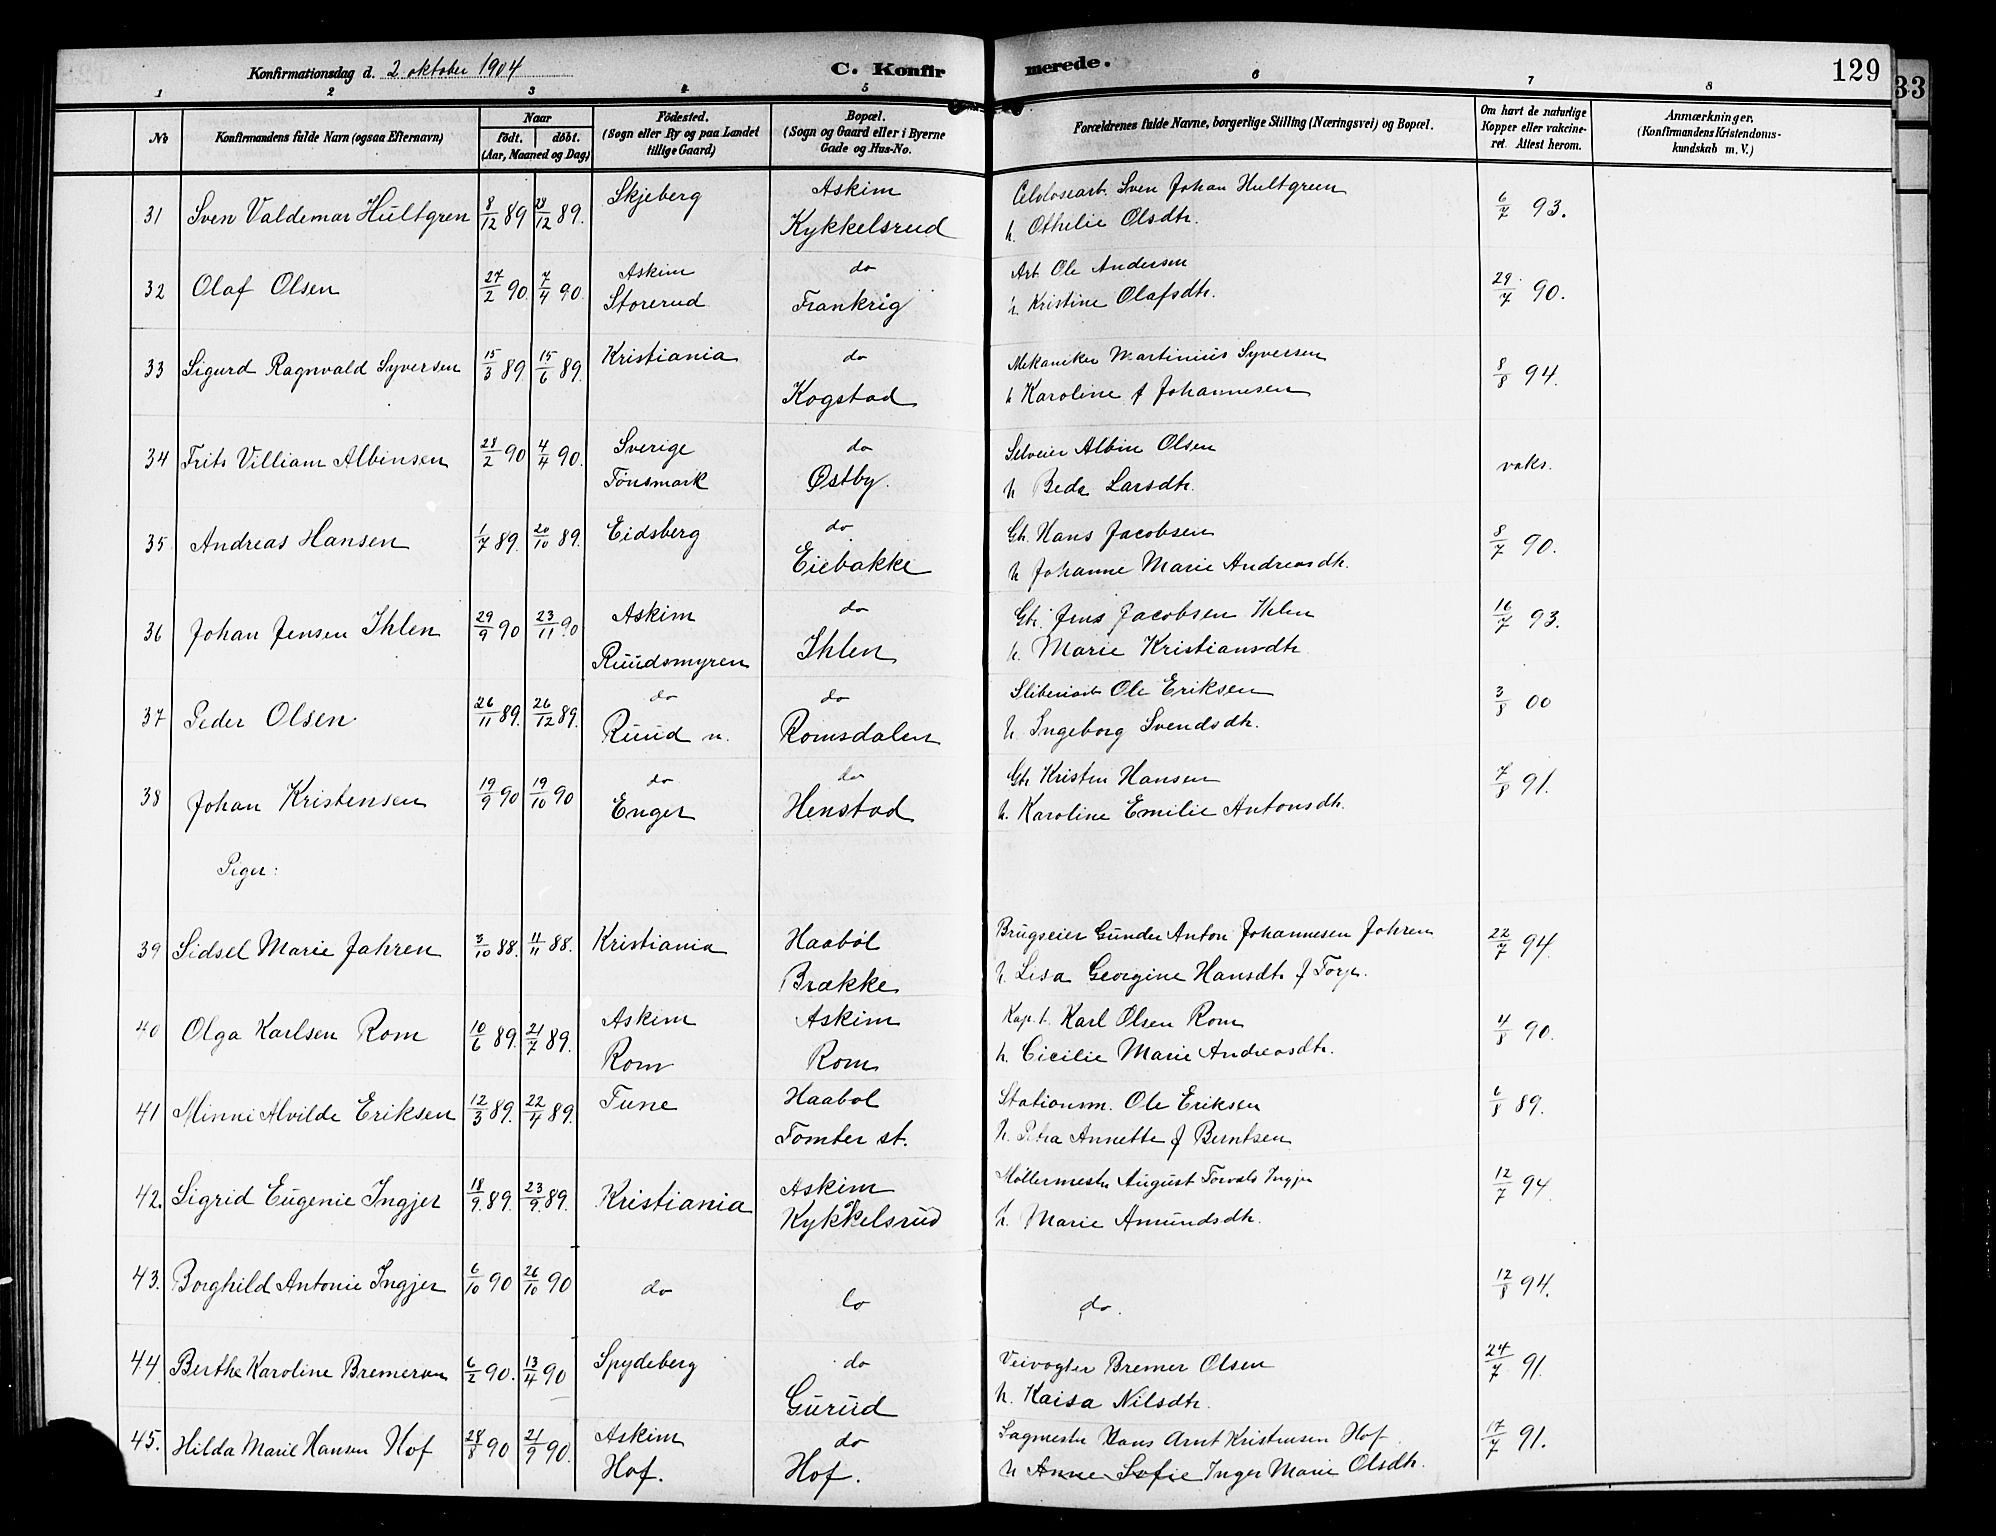 Konfirmationsdag d. 2 oktober 1904 C. Konfir merede. 129
33
1 2 3 4 5 6 7 8
No Konfirmandens fulde Navn (ogsaa Efternavn) Naar født. døbt. (Aar, Maaned og Dag) Fødested. (Sogn eller By og paa Landet tillige Gaard) Bopæl. (Sogn og Gaard eller i Byerne Gade og Hus-No. Forældrenes fulde Navne, borgerlige Stilling (Næringsvei) og Bopæl. Om havt de naturlige Kopper eller vakcineret. Attest herom. Anmærkninger. (Konfirmandens Kristendomskundskab m. V.)
31 Sven Valdemar Hultgren 8/12 89 28/12 89. Skjeberg Askim Celolosearb. Sven Johan Hultgreen 6/7 93.
Kykkelsrud h. Othelie Olsdtr.
32 Olaf Olsen 27/2 90. 7/4 90. Askim do Arb. Ole Andersen 29/7 90.
Storerud Frankrig h Kristine Olafsdtr.
33 Sigurd Ragnvald Syversen 15/3 89. 15/6 89. Kristiania do Mekaniker Martinius Syversen 8/8 94.
Kogstad h Karoline f Johannesen
34 Frits Villiam Albinsen 28/2 90 4/4 90. Sverige do Selveier Albin Olsen vaks.
Tönsmark Østby. h Beda Larsdtr.
35 Andreas Hansen 1/7 89. 20/10 89. Eidsberg do Gbr. Hans Jacobsen 8/7 90.
Eiebakke h Johanne Marie Andreasdtr.
36 Johan Jensen Ihlen 29/9 90 23/11 90 Askim do Gbr. Jens Jacobsen Ihlen 16/7 93.
Ruudsmyren Ihlen h. Marie Kristiansdtr
37 Peder Olsen. 26/11 89. 26/12 89. do do Sliberiarb Ole Eriksen 3/8 00
Ruud n. Romsdalen h. Ingeborg Svendsdtr.
38 Johan Kristensen 19/9 90 19/10 90 do do Gbr Kristen Hansen 7/8 91.
Enger Henstad h. Karoline Emilie Antonsdtr.
Piger:
39 Sidsel Marie Jahren 3/10 88. 11/11 88. Kristiania Haabøl Brugseier Gunder Anton Johannesen Jahren 22/7 94.
Brække h. Lesa Georgine Hansdtr f Torp.
40 Olga Karlsen Rom 10/6 89. 21/7 89. Askim Askim Kap. t. Karl Olsen Rom 4/8 90.
Rom Rom h. Cicilie Marie Andreasdtr.
41 Minni Alvilde Eriksen 12/3 89. 22/4 89. Tune Haabøl Stationsm. Ole Eriksen 6/8 89.
Tomter st. h. Petra Annette f Berntsen
42. Sigrid Eugenie Ingjer 18/9. 89. 23/9. 89. Kristiania Askim Møllermester August Torvald Ingjer 12/7 94.
Kykkelsrud h. Marie Amundsdtr.
43. Borghild Antonie Ingjer 6/10 90 26/10 90 do do do. 12/8 94.
44 Berthe Karoline Bremersen 6/2 90. 13/4 90 Spydeberg do Veivogter Bremer Olsen 24/7 91.
Gurud h. Kaisa Nilsdtr.
45. Hilda Marie Hansen Hof 28/8 90 21/9 90. Askim do Sagmester Hans Arnt Kristensen Hof 17/7 91.
Hof. Hof. h Anne Sofie Inger Marie Olsdtr.